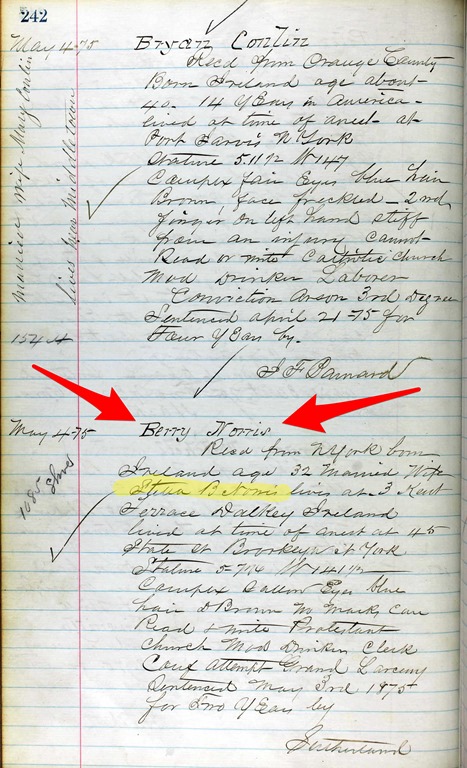 242
May 4-75
Bryan Conlin
Recd from Orange County
Born Ireland age about
40. 14 years in America.
lived at time of arrest at
Port Jarvis N York
Stature 5.11½ Wt 147
Complex fair Eyes blue hair
Brown face freckled - 2nd
finger on left hand stiff
from an injury cannot
Read or write Catholic Church
Mod Drinker Laborer
Conviction Arson 3rd Degree
Sentenced April 21-75 for
Four years by.
Married Wife Mary Conlin
lives near Middletown
154
May 4-75
Berry Norris
Recd from N York born
Ireland age 32 Married Wife
lives at 3 Kent
Terrace Dalkey Ireland
lived at time of arrest at 45
State St Brooklyn N York
Stature 5 Wt 141½
Complex Sallow Eyes blue
hair D Brown no Marks can
Read & write Protestant
Church Mod Drinker Clerk
Attempt Grand Larceny
Sentenced May 3rd 1875
for Two years by
Sutherland